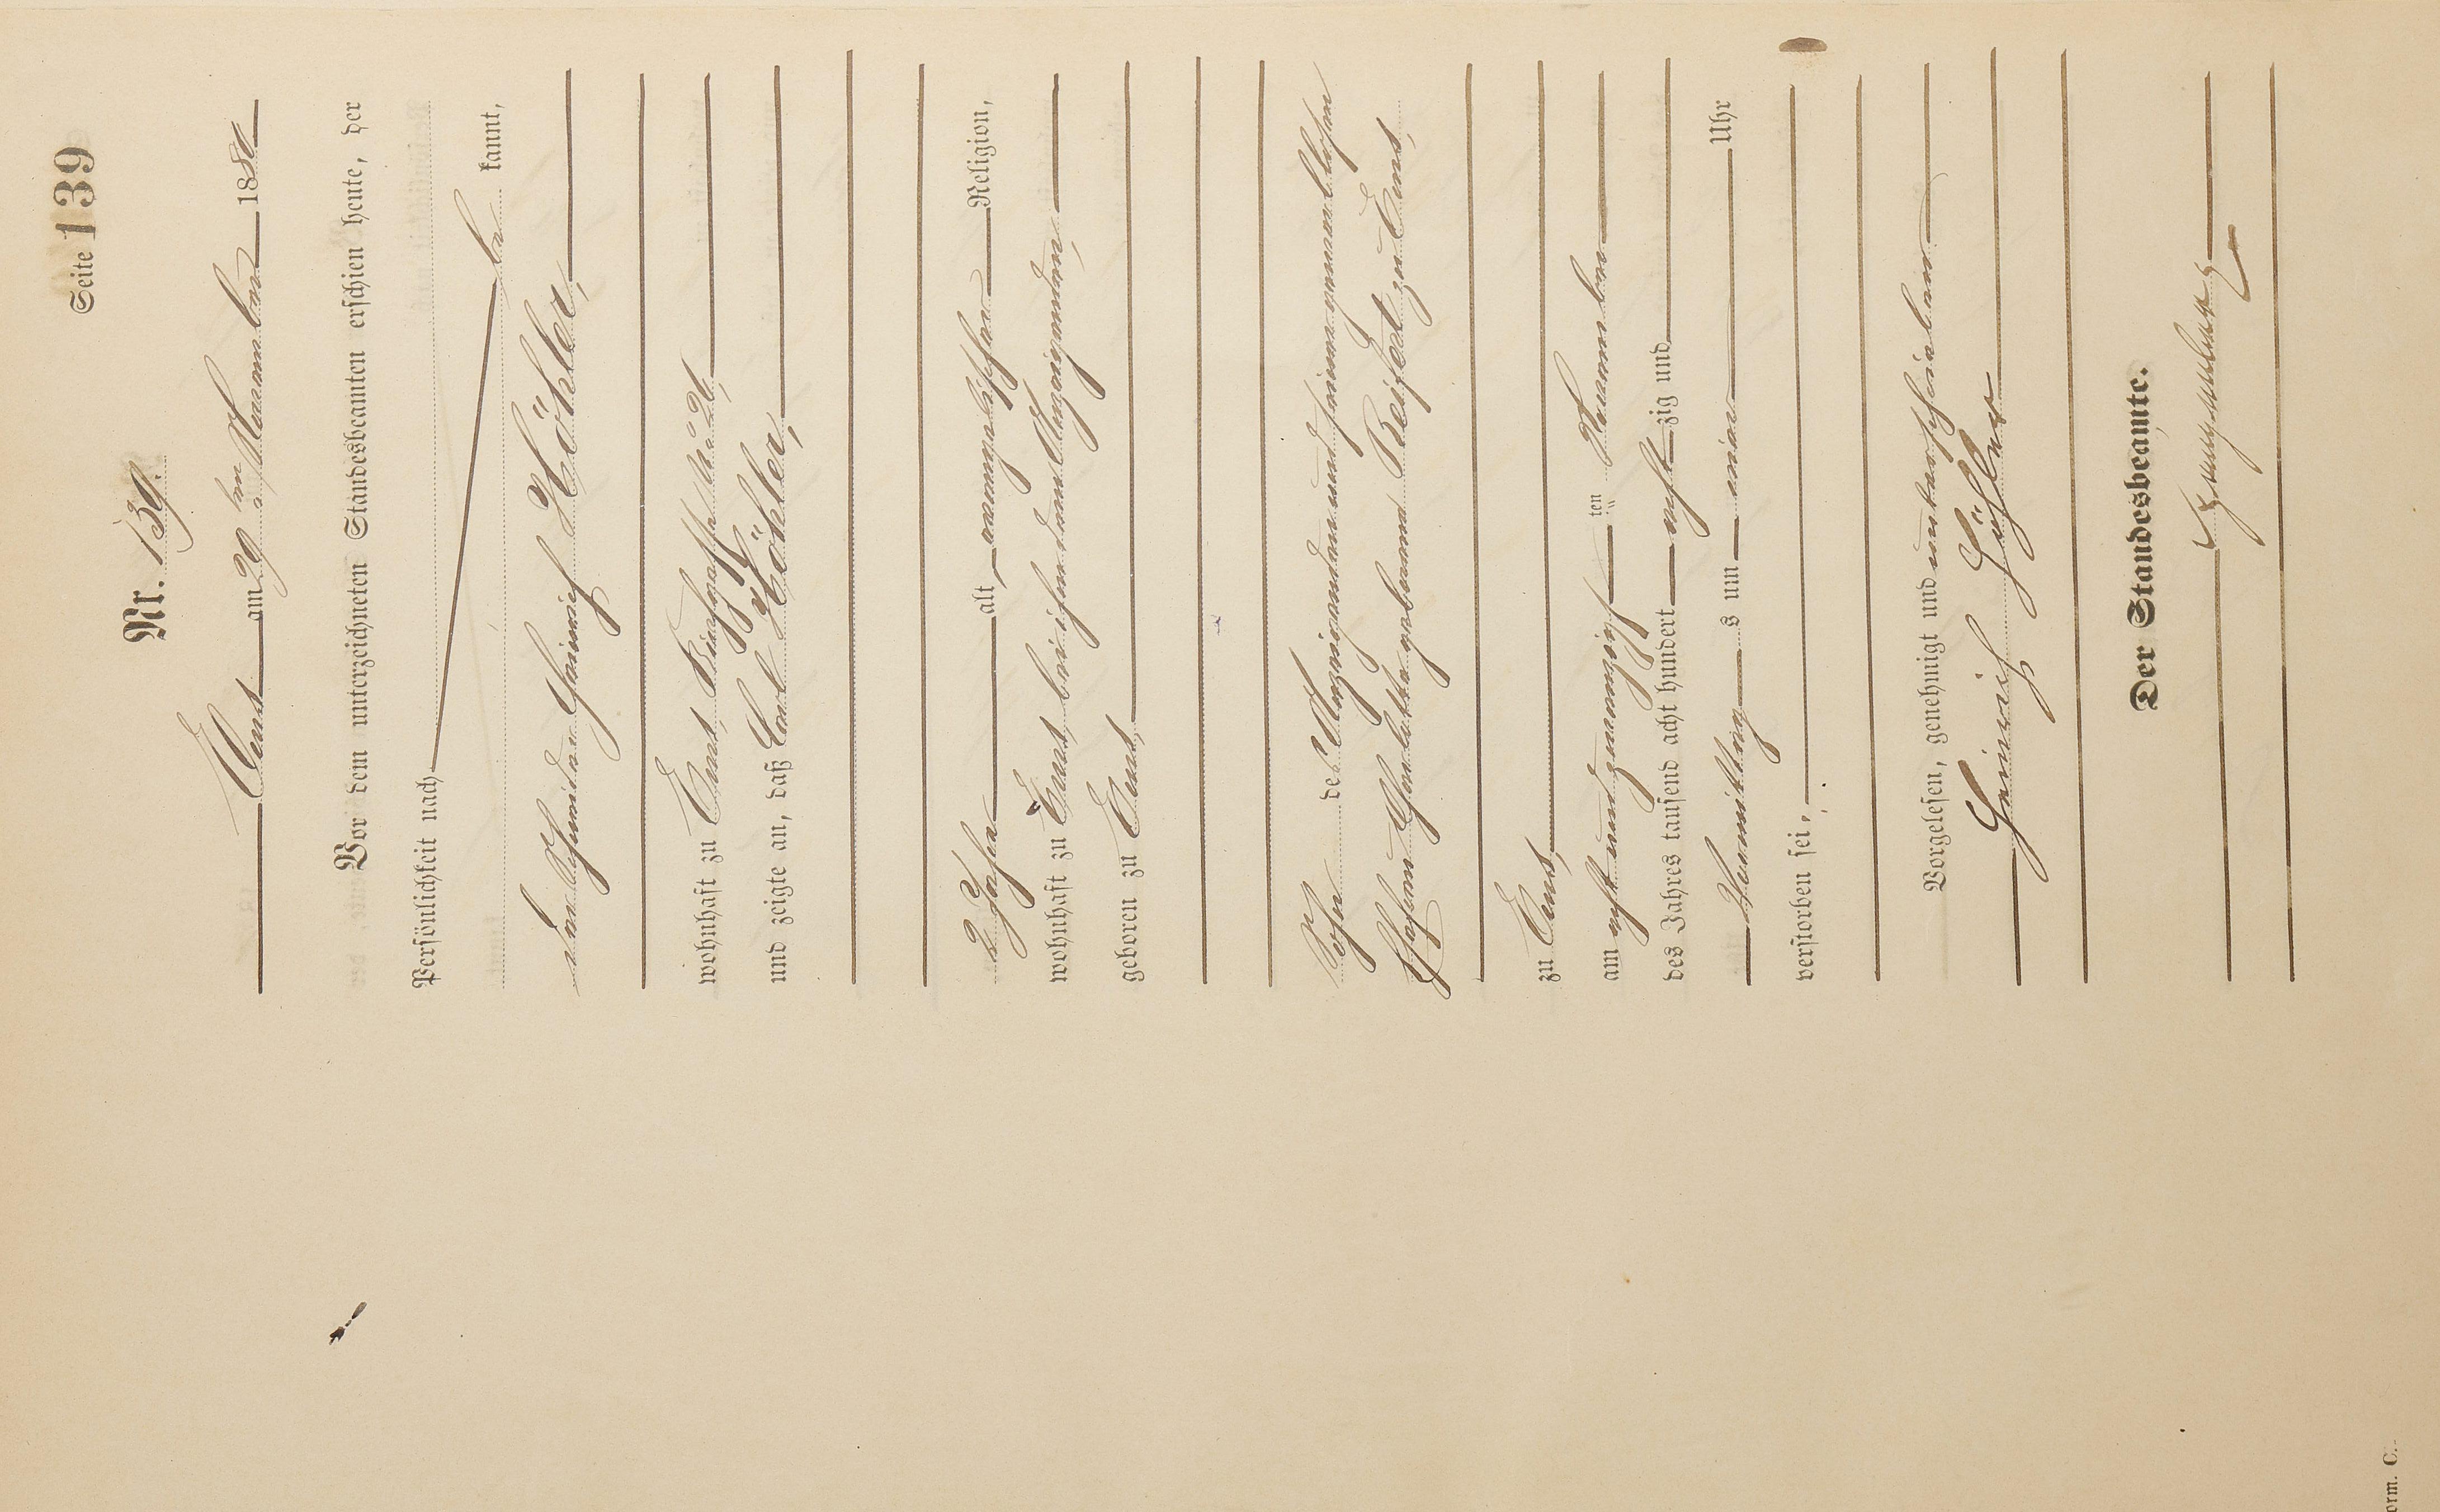 Seite 139
Nr. 139.
Ems am 29ten November 1880
Vor dem unterzeichneten Standesbeamten erschien heute, der
Persönlichkeit nach
be kannt,
der Schneider Heinrich Höhler,
wohnhaft zu Ems,
und zeigte an, daß Carl Höhler,
2 Jahre alt, evangelischer Religion,
wohnhaft zu Ems bei ihm dem Anzeigenden,
geboren zu Ems,
Sohn des Anzeigenden und seiner genannten
Ehefrau Charlotte geborene Reifert zu Ems,
zu Ems,
am acht und zwanzigsten November
des Jahres tausend acht hundert acht zig und
Vormittags um vier Uhr
verstorben sei,
Vorgelesen, genehmigt und unterschrieben
Heinrich Höhler
Der Standesbeamte.
orm. C.